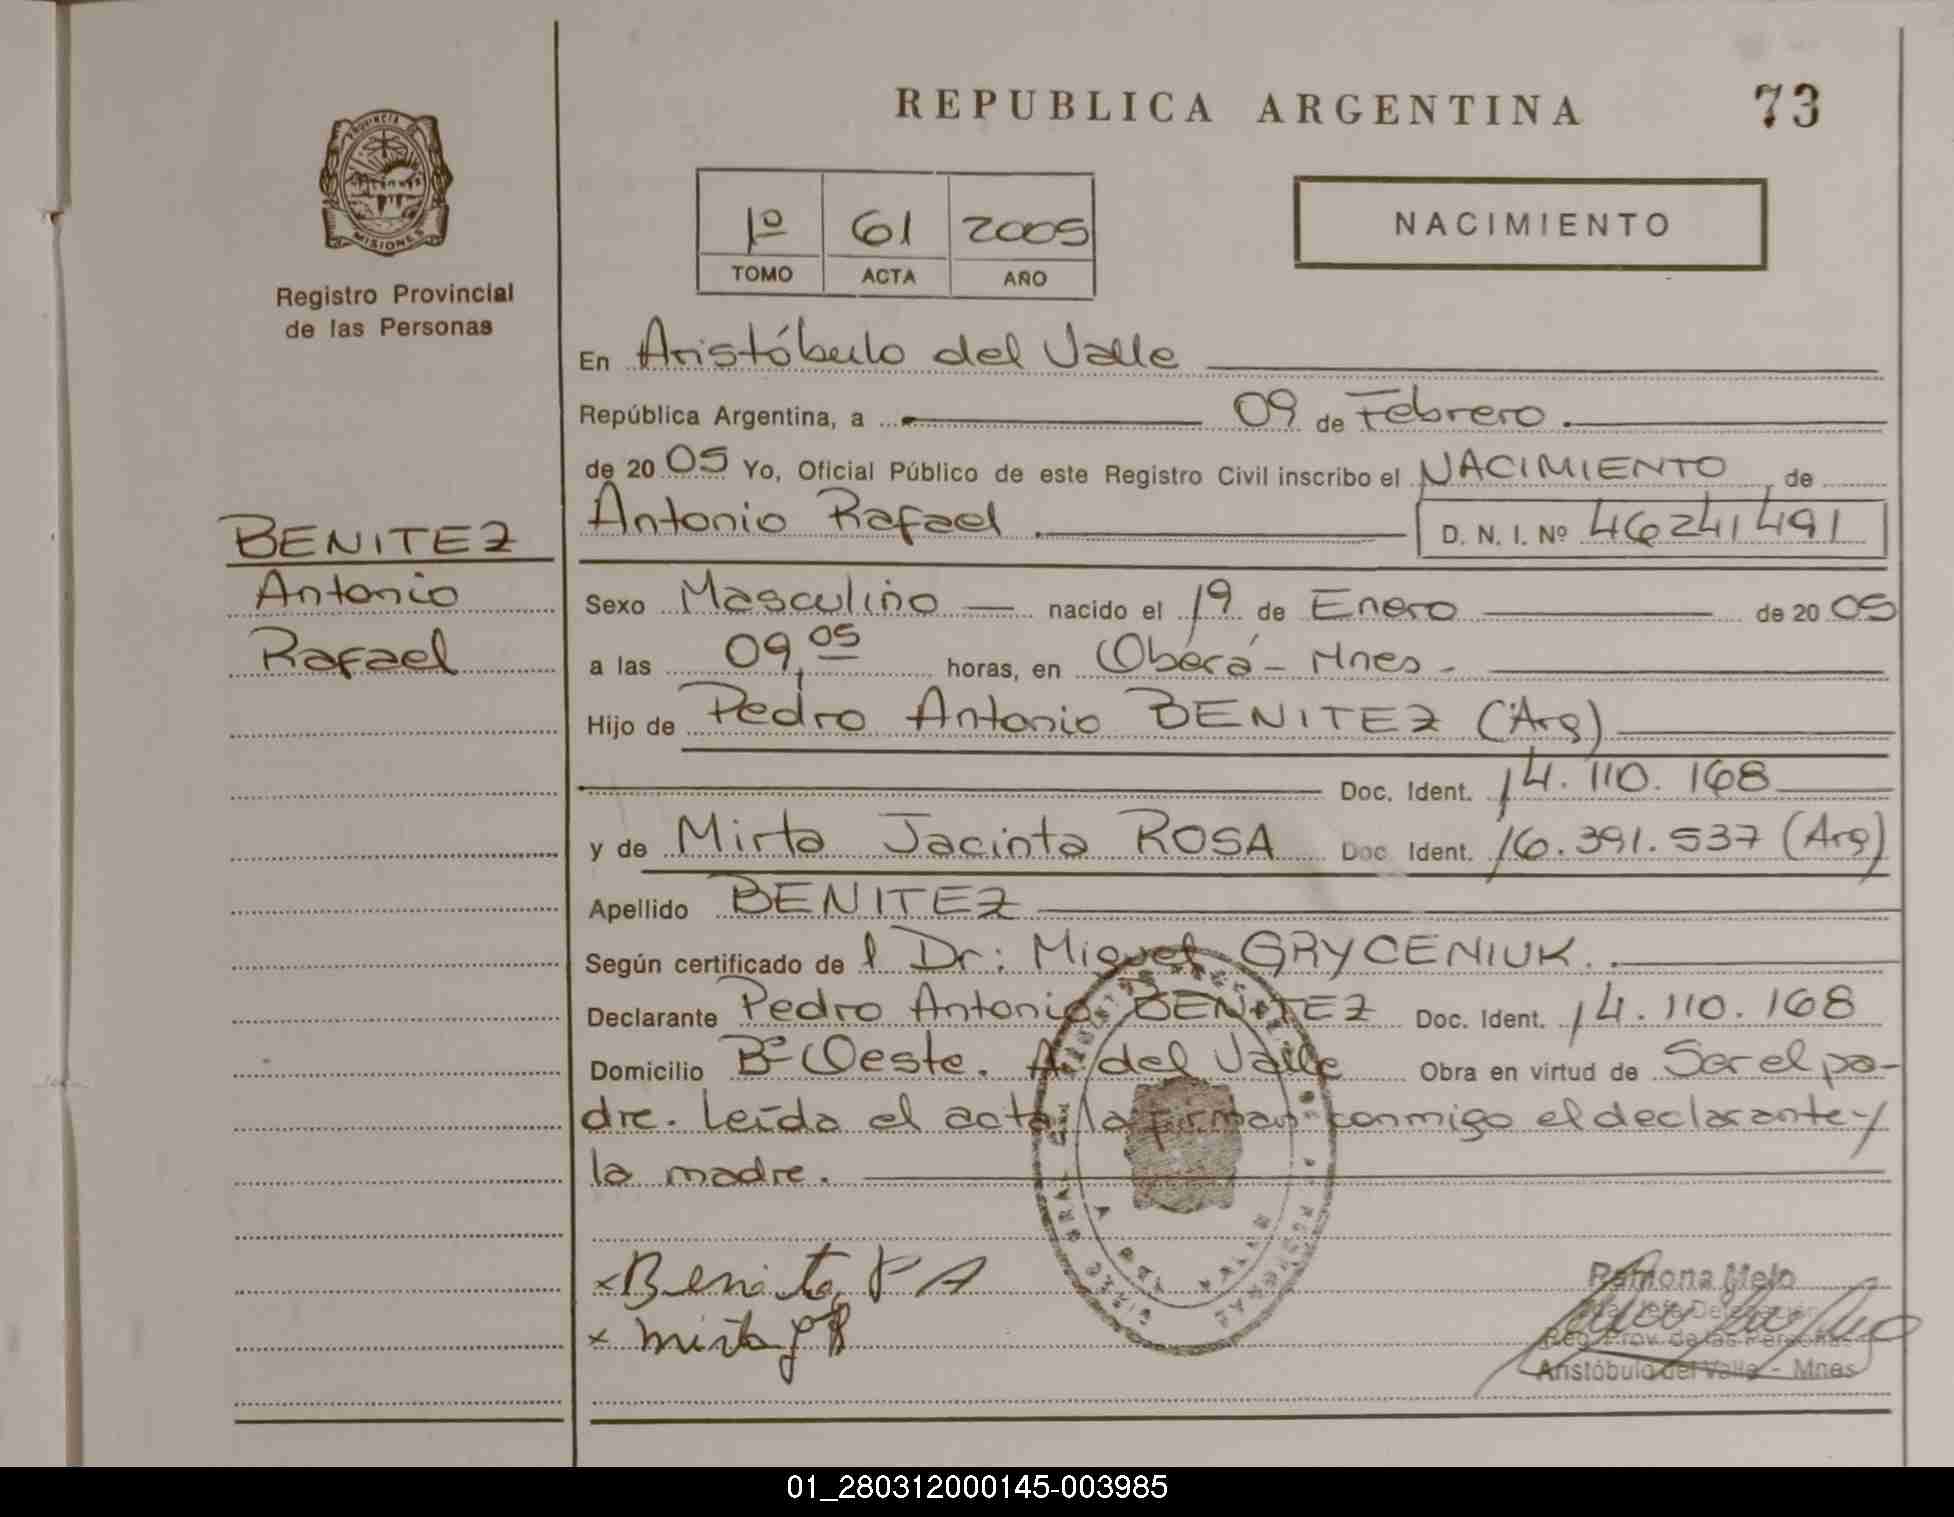 REPUBLICA ARGENTINA
73
PROVINCIA DE
MISIONES
Registro Provincial
de las Personas
1º 61 2005
TOMO ACTA AÑO
NACIMIENTO
En Aristóbulo del Valle
República Argentina, a 09 de Febrero
de 2005 Yo, Oficial Público de este Registro Civil inscribo el NACIMIENTO de
Antonio Rafael D. N. I. Nº 46241491
BENITEZ
Antonio
Rafael
Sexo Masculino nacido el 19 de Enero de 2005
a las 09,05 horas, en Oberá - Mnes -
Hijo de Pedro Antonio BENITEZ (Arg)
Doc. Ident. 14.110.168
y de Mirta Jacinta ROSA Doc. Ident. 16.391.537 (Arg)
Apellido BENITEZ
Según certificado de l Dr: Miguel GRYCENIUK.
Declarante Pedro Antonio BENITEZ Doc. Ident. 14.110.168
Domicilio Bº Oeste. A. del Valle Obra en virtud de Ser el pa-
dre. Leída el acta, la firman conmigo el declarante y
la madre.
x Benitez P A
x Mirta J R
Ramona Melo
Jefa Delegación
Reg. Prov. de las Personas
Aristóbulo del Valle - Mnes
01_280312000145-003985